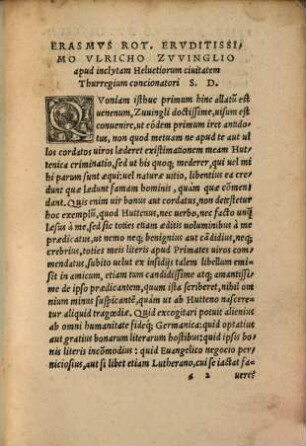 ERASMVS ROT. ERVDITISSI,
MO VLRICHO ZVVINGLIO
apud inclytam Heluetiorum ciuitatem
Thurregium concionatori S. D.
QVoniam isthuc primum hinc allatũ est
uenenum, Zuuingli doctissime, uisum est
conuenire, ut eòdem primum iret antido
tus, non quod metuam ne apud te aut ul
los cordatos uiros læderet existimationem meam Hut
tenica criminatio, sed ut his quoq; mederer, qui uel mi
hi parum sunt æqui: uel naturæ uitio, libentius ea cre
dunt quæ lædunt famam hominis, quàm quæ cõmen
dant. Quis enim uir bonus aut cordatus, non detestetur
hoc exemplũ, quod Huttenus, nec uerbo, nec facto unq̃
læsus à me, sed sic toties etiam æditis uoluminibus à me
prædicatus, ut nemo neq; benignius aut cãdidius, neq;
crebrius, toties meis literis apud Primates uiros commen
datus, subito uelut ex insidijs talem libellum emi
sit in amicum, etiam tum candidissime atq; amantissi
me de ipso prædicantem, quum ista scriberet, nihil om
nium minus suspicantẽ, quàm ut ab Hutteno nascere
tur aliquid tragœdiæ. Quid excogitari potuit alienius
ab omni humanitate fideq; Germanica: quid optatius
aut gratius bonarum literarum hostibus: quid ipsis bo
nis literis incõmodius: quid Euangelico negocio per
niciosius, aut si libet etiam Lutherano, cui se iactat fa-
a 2 uere?